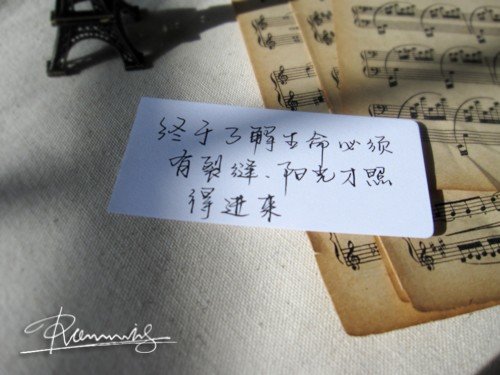 终于了解生命必须
有裂缝、阳光才照
得进来